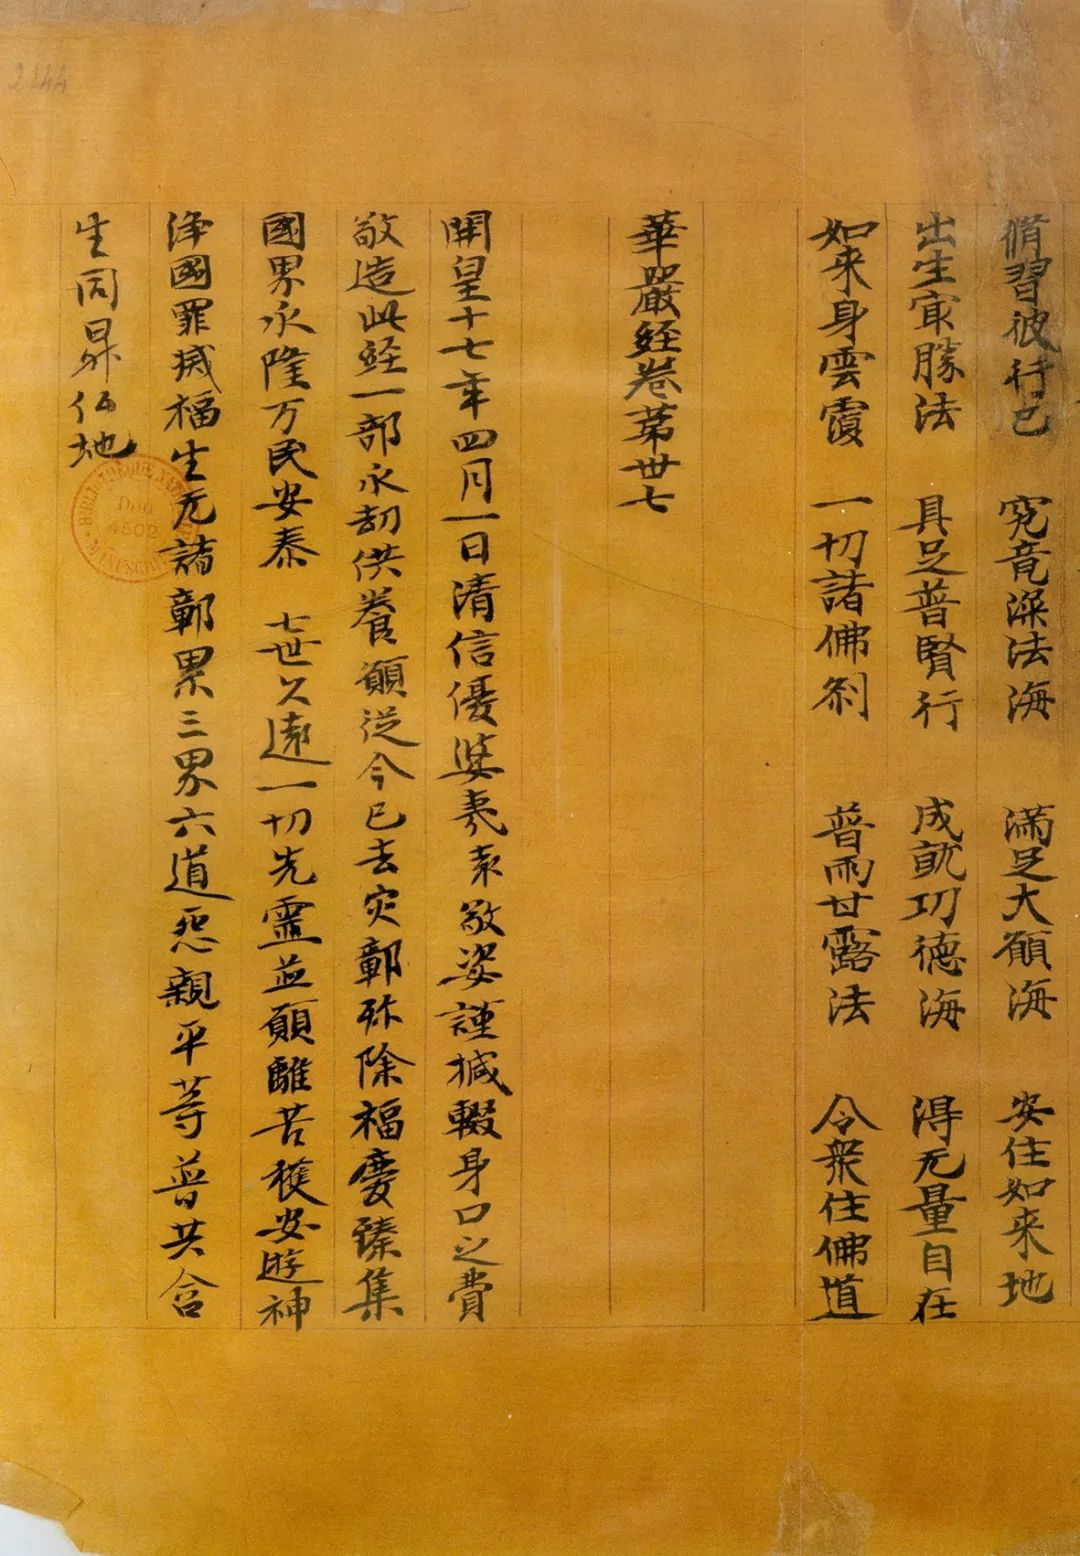 脩習彼行已 究竟深法海 滿足大願海 安住如来地
出生寂勝法 具足普賢行 成就功德海 得无量自在
如来身雲霞 一切諸佛刹 普雨甘露法 令衆住佛道
華嚴經卷第卅七
開皇十七年四月一日清信優婆夷袁敬姿謹減輟身口之費
敬造此經一部永劫供養願從今已去灾鄣殄除福慶臻集
國界永隆万民安泰 七世久遠一切先靈並願離苦獲安遊神
淨國罪滅福生无諸鄣累三界六道怨親平等普共含
生同昇佛地
2144
BIBLIOTHÈQUE NATIONALE
Don
4502
MANUSCRITS